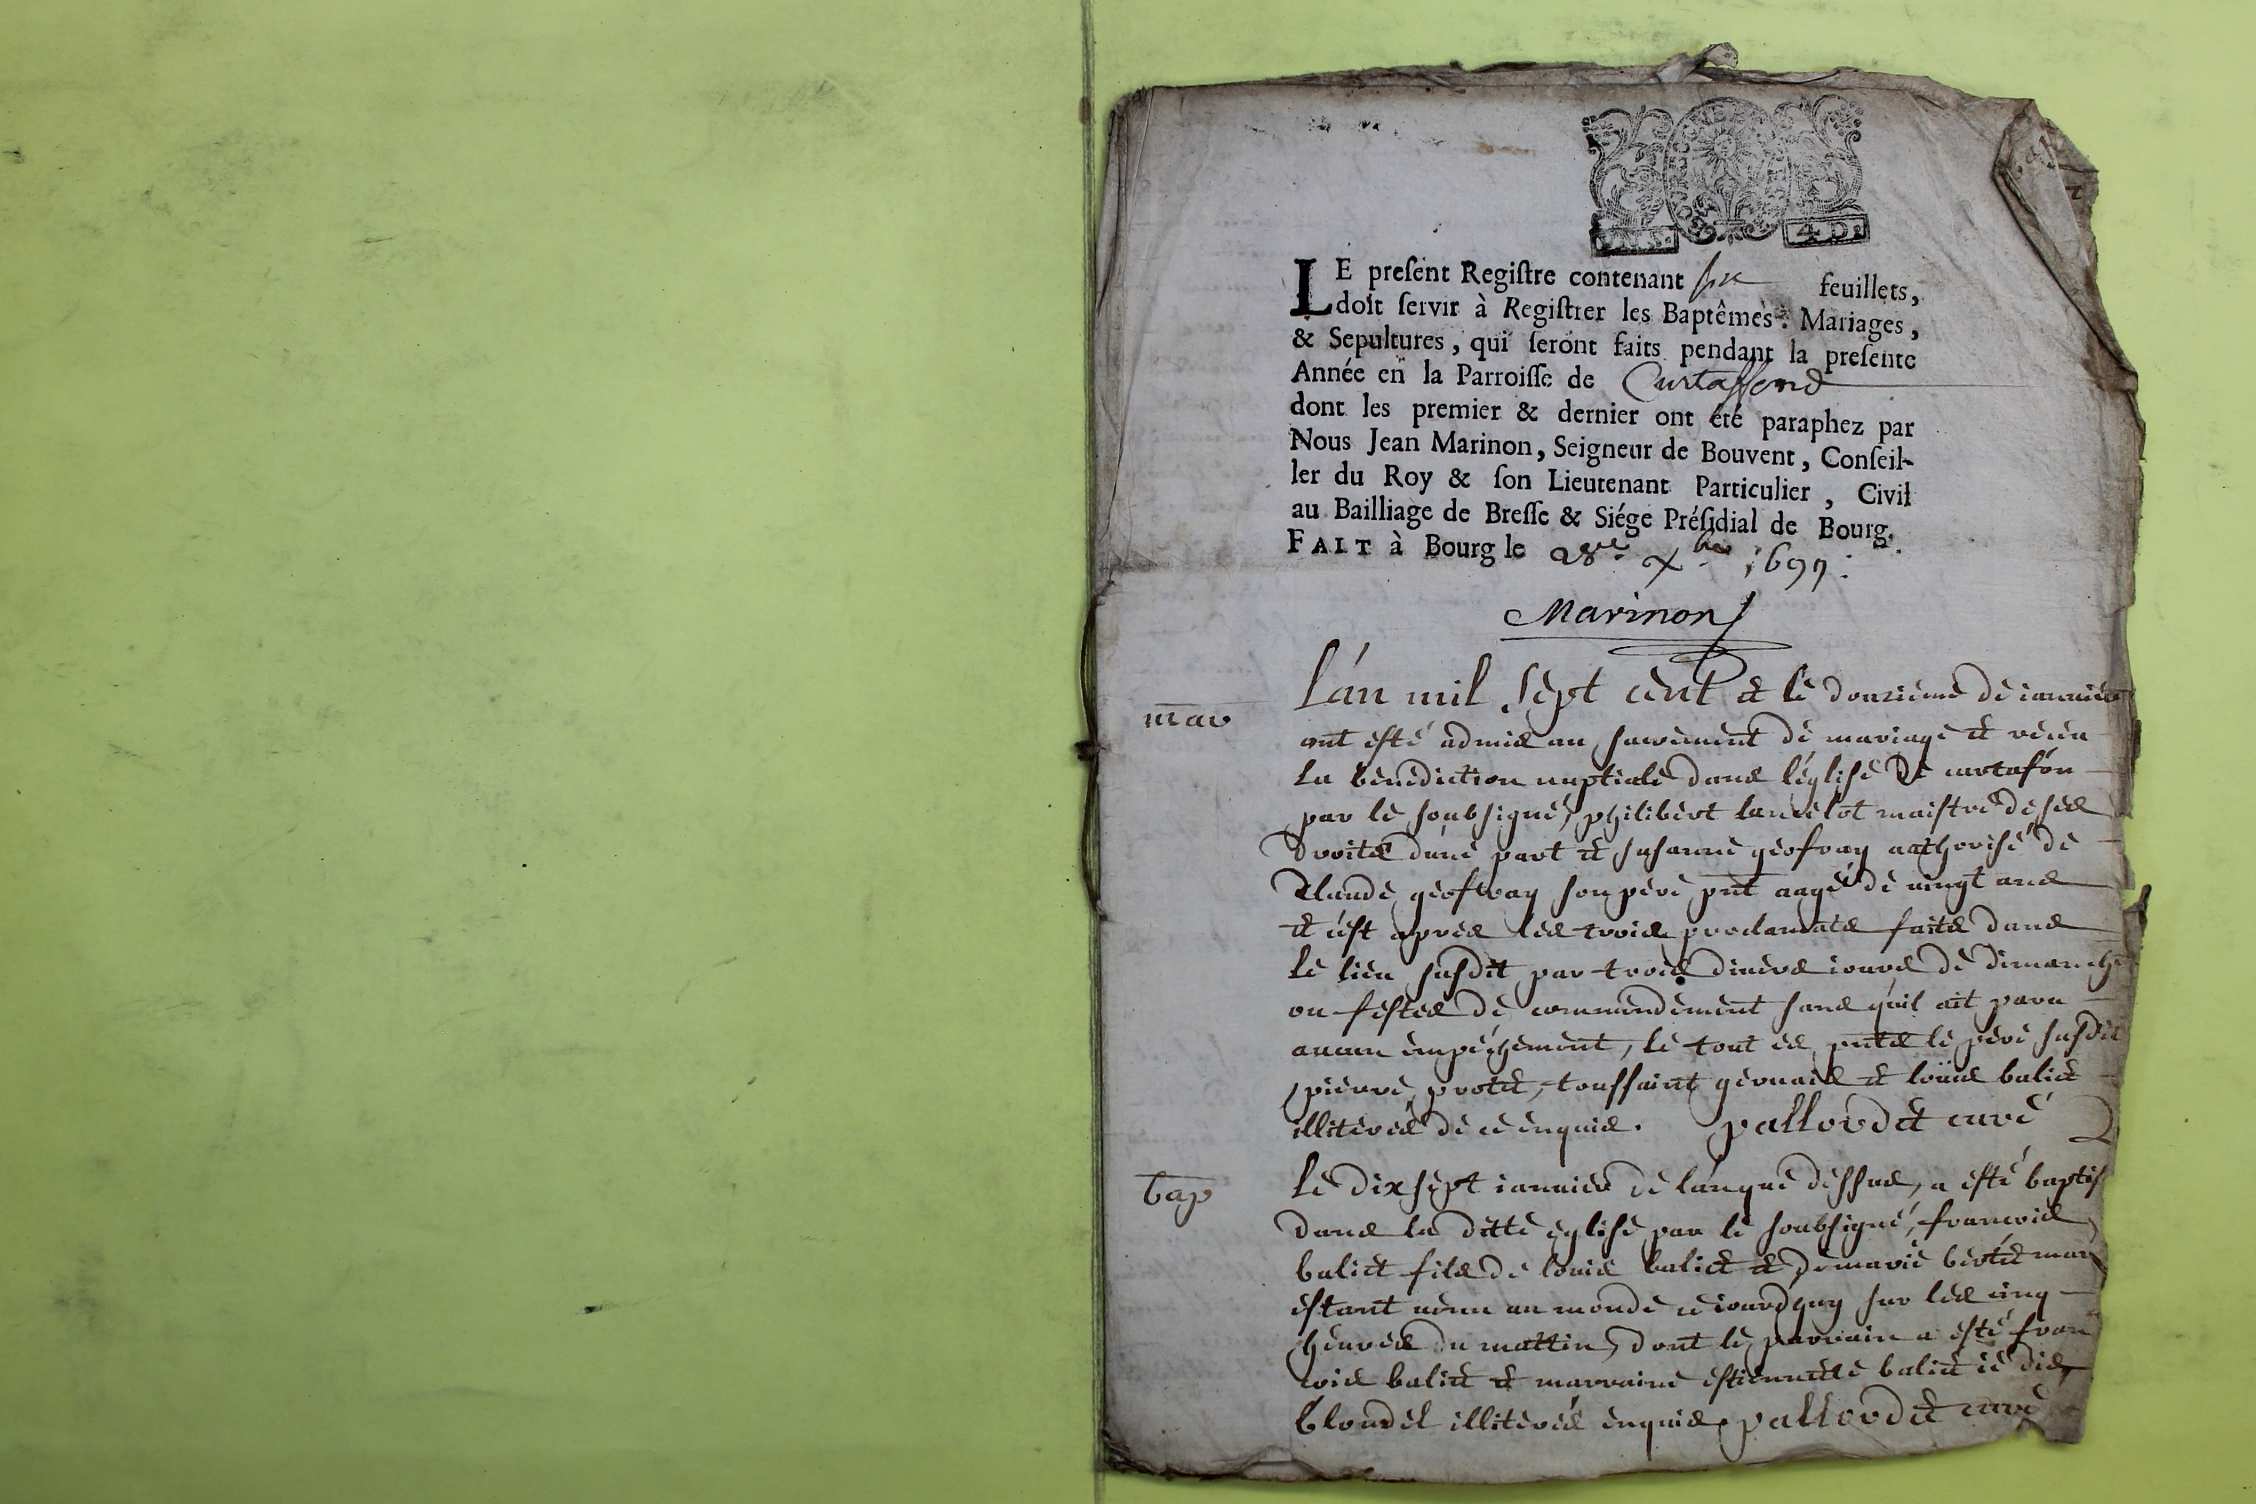 4. D.
LE preſent Regiſtre contenant six feuillets,
doit ſervir à Regiſtrer les Baptêmes, Mariages,
& Sepultures, qui ſeront faits pendant la preſente
Année en la Parroiſſe de Curtaffond
dont les premier & dernier ont été paraphez par
Nous Jean Marinon, Seigneur de Bouvent, Conſeil-
ler du Roy & ſon Lieutenant Particulier, Civil
au Bailliage de Breſſe & Siége Préſidial de Bourg.
FAIT à Bourg le 28e. Xbre 1699.
Marinon
mar
L'an mil sept cent et le douzième de ianvier
ont esté admis au sacrement de mariage et receu
la benediction nuptiale dans l'église de curtafon
par le soubsigné, philibert lancelot maistre de ses
droits d'une part et susanne geofray authorisé de
Claude geofray son père pnt aagé de vingt ans
et c'est après les trois proclamats faits dans
le lieu susdit par trois divers iours de dimanche
ou festes de commendement sans qu'il ait paru
aucun empéchement, le tout és pnts le père susdit
pierre protet, toussaint gervais et loüis baliet
illiterés de ce enquis. pallordet curé
bap
Le dixsept ianvier de l'an que dessus, a esté baptis
dans la ditte église par le soubsigné, francois
baliet fils de louis baliet et de marie bertet mar
estant venu au monde ce iourdhuy sur les cinq
heures du mattin, dont le parrain a esté fran
cois baliet et marraine estiennette baliet
blondel illiterés enquis. pallordet curé